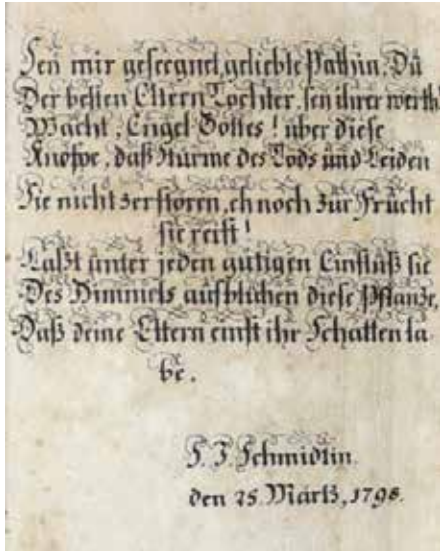 Sey mir geseegnet, geliebte Pathin, Du
Der besten Eltern Tochter, sey ihrer werth!
Wacht, Engel Gottes! über diese
Knospe, daß Stürme des Tods und Leiden
Sie nicht zerstören, eh noch zur Frucht
sie reift!
Laßt unter jeden gütigen Einfluß sie
Des Himmels aufblühen diese Pflanze,
Daß deine Eltern einst ihr Schatten la-
be.
J. J. Schmidlin.
den 25. Märtz, 1798.